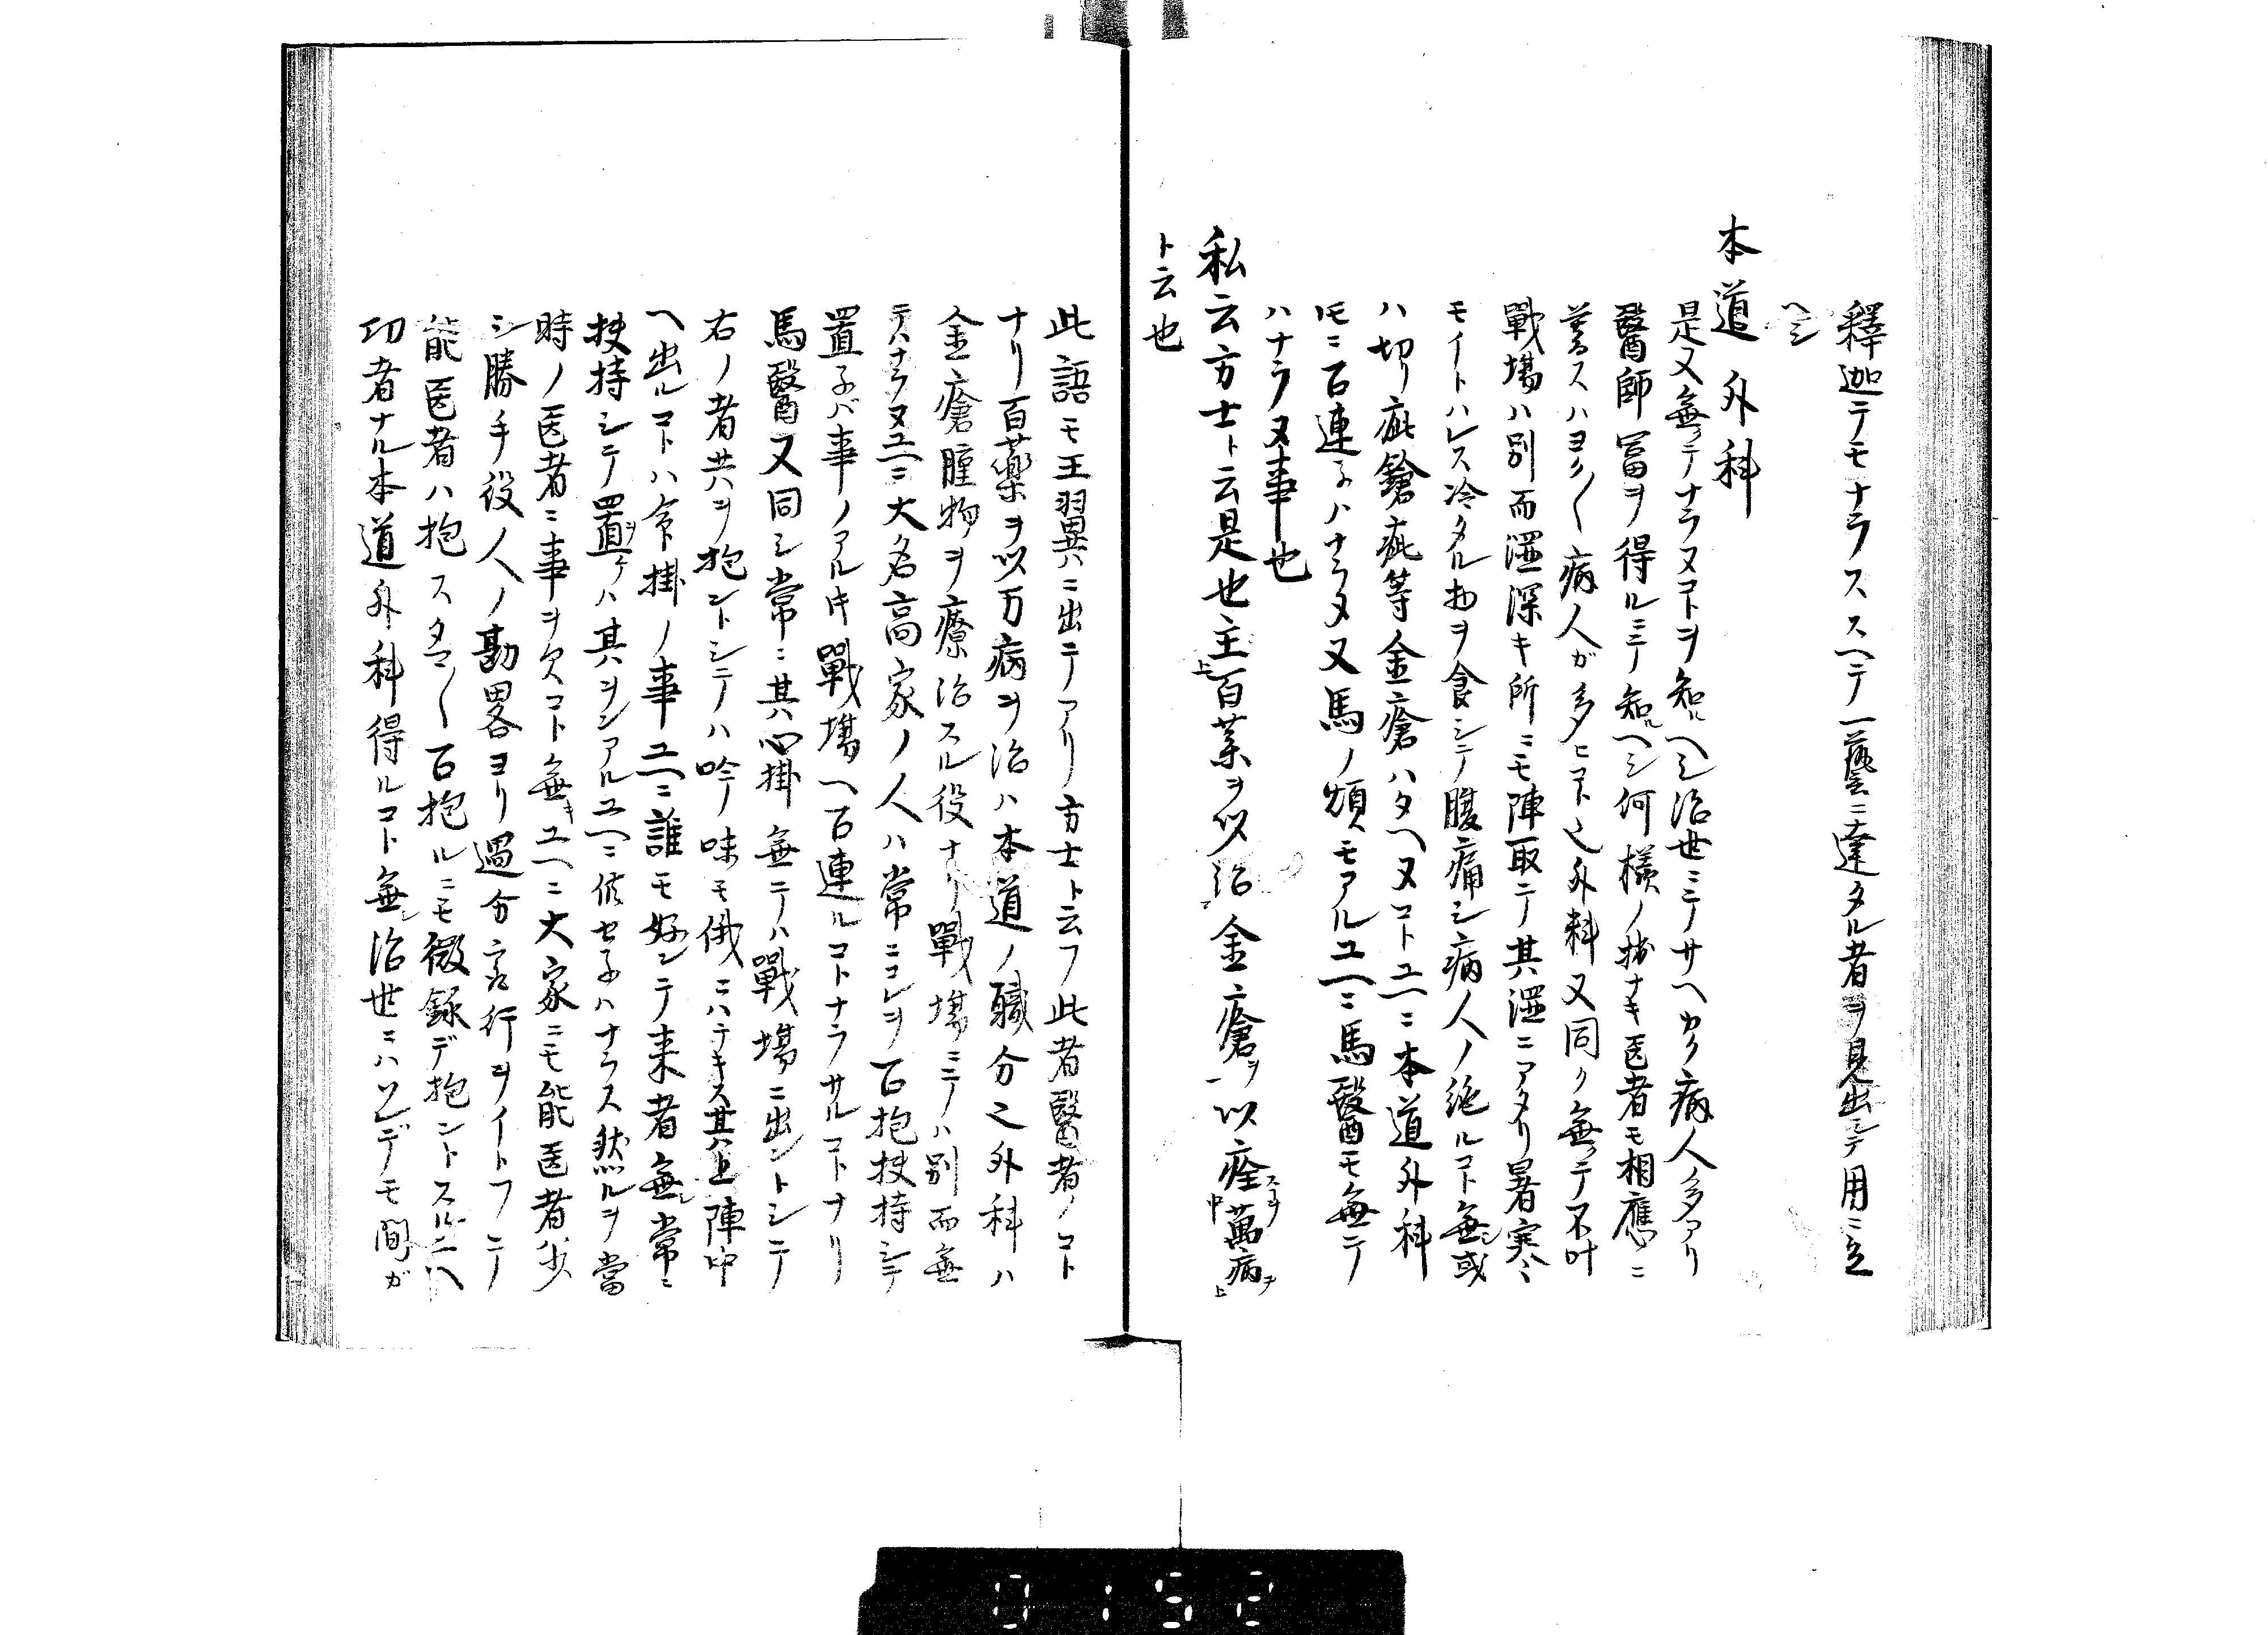 釋迦テモナラススヘテ一藝ニ達タル者ヲ見出シテ用ニ立
ヘシ
本道 外科
是又無テナラヌコトヲ知ルヘシ治世ニテサヘカク病人ノ多アリ
醫師冨ヲ得ルニテ知ルヘシ何様ノ拙ナキ医者モ相應ニ
暮スハヨク〱病人ガ多ヒコト也外科又同ク無テ不叶
戰場ハ別而湿深キ所ニモ陣取テ其湿ニアタリ暑寒ニ
モイトハレス冷タル物ヲ食シテ腹痛シ病人ノ絶ルコト無シ或
ハ切リ疵鎗疵等金瘡ハタヘヌコトユヘニ本道外科
圧ニ召連子ハナラヌ又馬ノ煩モアルユヘニ馬醫モ無テ
ハナラヌ事也
私云方士ト云是也主百薬ヲ以治金瘡ヲ以痊萬病ヲ
ト云也
此語モ王翼ニ出テアリ方士ト云フ此者醫者ノコト
ナリ百藥ヲ以万病ヲ治ハ本道ノ職分也外科ハ
金瘡腫物ヲ療治スル役ナリ戰場ニテハ別而無
テハナラヌユヘニ大名高家ノ人ハ常ニコレヲ召抱扶持シテ
置子バ事ノアル時戰場ヘ召連ルコトナラサルコトナリ
馬醫又同シ常ニ其心掛無テハ戰場ニ出ントシテ
右ノ者共ヲ抱ントシテハ吟味モ俄ニハテキス其上陣中
ヘ出ルコトハ命掛ノ事ユヘニ誰モ好ンテ来者無シ常ニ
扶持シテ置ケハ其ヲンアルユヘニ依セ子ハナラス然ルヲ當
時ノ医者ニ事ヲ欠コト無キユヘニ大家ニモ能医者少
シ勝手役人ノ勘畧ヨリ過分ニ行ヲイトフニテ
能医者ハ抱スタマ〱召抱ルニモ微録デ抱ントスルユヘ
功者ナル本道外科得ルコト無シ治世ニハソレデモ間ガ